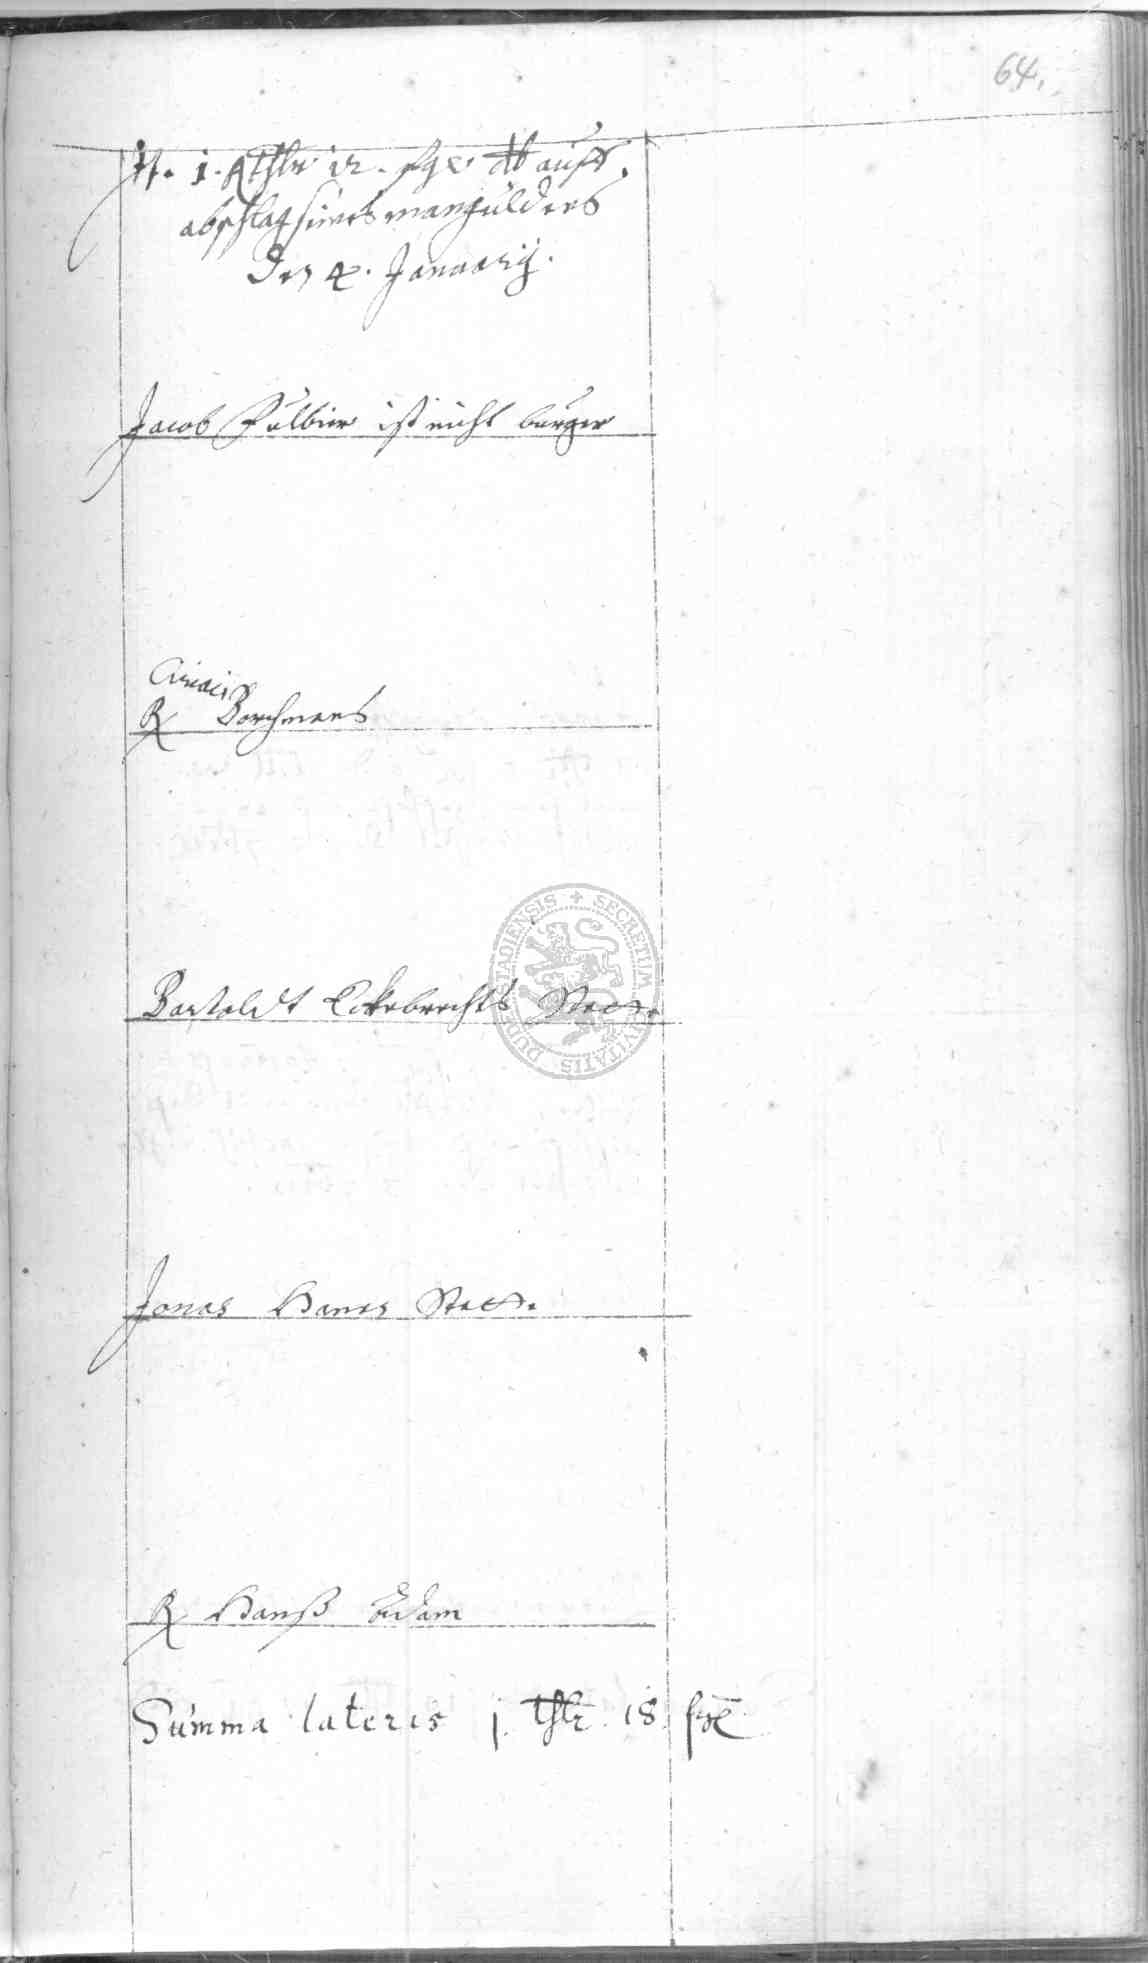 64.
It. 1. Rthlr 12. sgr dt auff
abschlag seines manguldens
den 4. Januarij.
Jacob ist nicht burger
Ciriaci
R Borchmans
Bartoldt Eckebrechts
Jonas Hanes
R Hanß Adam
Summa lateris j. thlr 18 sgr
SECRETUM CIVITATIS DUDERSTADIENSIS